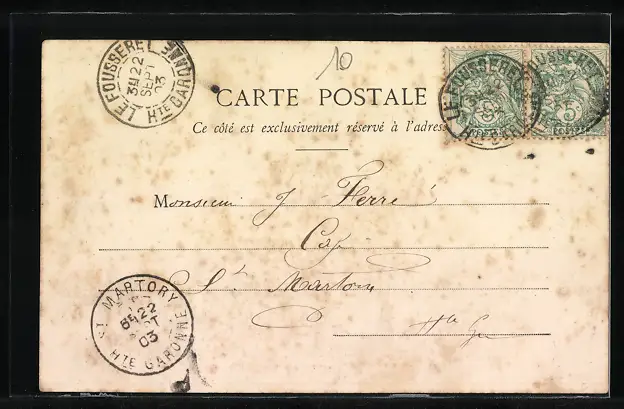 10
LE FOUSSERET
3E 22
SEPT
03
HTE GARONNE
CARTE POSTALE
Ce côté est exclusivement réservé à l'adres
LE FOUSSERET
HTE
5
FOUSSERET
5
POSTES
Monsieur J. Ferré
St Martory
Hte Gne
ST MARTORY
6E 22
SEPT
03
HTE GARONNE